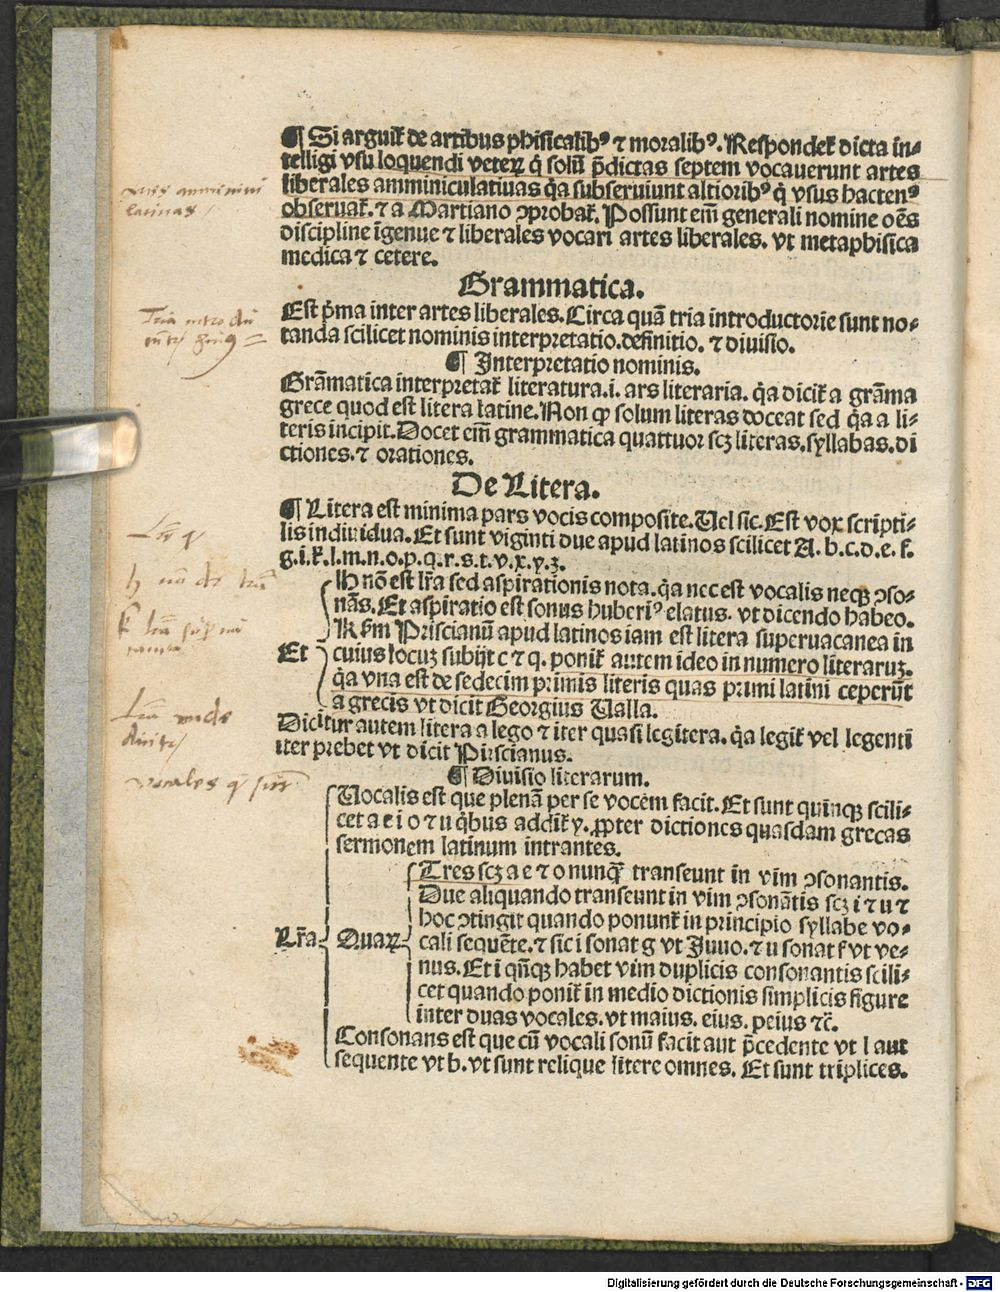 ¶ Si arguit᷑ de artibus phisicalibꝰ ⁊ moralibꝰ. Respondet᷑ dicta in⸗
telligi vsu loquendi veteꝝ q̇ solū p̄dictas septem vocauerunt artes
liberales amminiculatiuas q̇a subseruiunt altioribꝰ q̇ vsus hactenꝰ
obseruat᷑. ⁊ a Martiano ꝓprobat᷑. Possunt em̄ generali nomine oēs
discipline īgenue ⁊ liberales vocari artes liberales. vt metaphisica
medica ⁊ cetere.
Grammatica.
Est p̄ma inter artes liberales. Circa quā tria introductorie sunt no⸗
tanda scilicet nominis interpretatio. definitio. ⁊ diuisio.
¶ Interpretatio nominis.
Grāmatica interpretat᷑ literatura .i. ars literaria. q̇a dicit᷑ a grāma
grece quod est litera latine. Non ꝙ solum literas doceat sed q̇a a li⸗
teris incipit. Docet em̄ grammatica quattuor scꝫ literas. syllabas. di
ctiones. ⁊ orationes.
De Litera.
¶ Litera est minima pars vocis composite. Uel sic. Est vox scripti⸗
lis indiuidua. Et sunt viginti due apud latinos scilicet A. b. c. d. e. f.
g. i. k. l. m. n. o. p. q. r. s. t. v. x. y. z.
H nō est lr̄a sed aspirationis nota. q̇a nec est vocalis neqꝫ ꝯso⸗
nās. Et aspiratio est sonus huberiꝰ elatus. vt dicendo habeo.
K sm̄ Priscianū apud latinos iam est litera superuacanea in
Et cuius locuꝫ subijt c ⁊ q. ponit᷑ autem ideo in numero literaruꝫ.
q̇a vna est de sedecim primis literis quas primi latini ceperūt
a grecis vt dicit Georgius Ualla.
Dicitur autem litera a lego ⁊ iter quasi legitera. q̇a legit᷑ vel legenti
iter prebet vt dicit Pirscianus.
¶ Diuisio literarum.
Uocalis est que plenā per se vocem facit. Et sunt quinqꝫ scili⸗
cet a e i o ⁊ u q̇bus addit᷑ y. ꝓpter dictiones quasdam grecas
sermonem latinum intrantes.
Tres scꝫ a e ⁊ o nunqꝫ̄ transeunt in vim ꝯsonantis.
Due aliquando transeunt in vim ꝯsonātis scꝫ i ⁊ u ⁊
hoc ꝯtingit quando ponunt᷑ in principio syllabe vo⸗
Lr̄a Quaꝝ cali sequēte. ⁊ sic i sonat g vt Juuo. ⁊ u sonat f vt ve⸗
nus. Et i qn̄qꝫ habet vim duplicis consonantis scili⸗
cet quando ponit᷑ in medio dictionis simplicis figure
inter duas vocales. vt maius. eius. peius ⁊c̄.
Consonans est que cū vocali sonū facit aut p̄cedente vt l aut
sequente vt b. vt sunt relique litere omnes. Et sunt triplices.
latinas
vocales
Digitalisierung gefördert durch die Deutsche Forschungsgemeinschaft - DFG